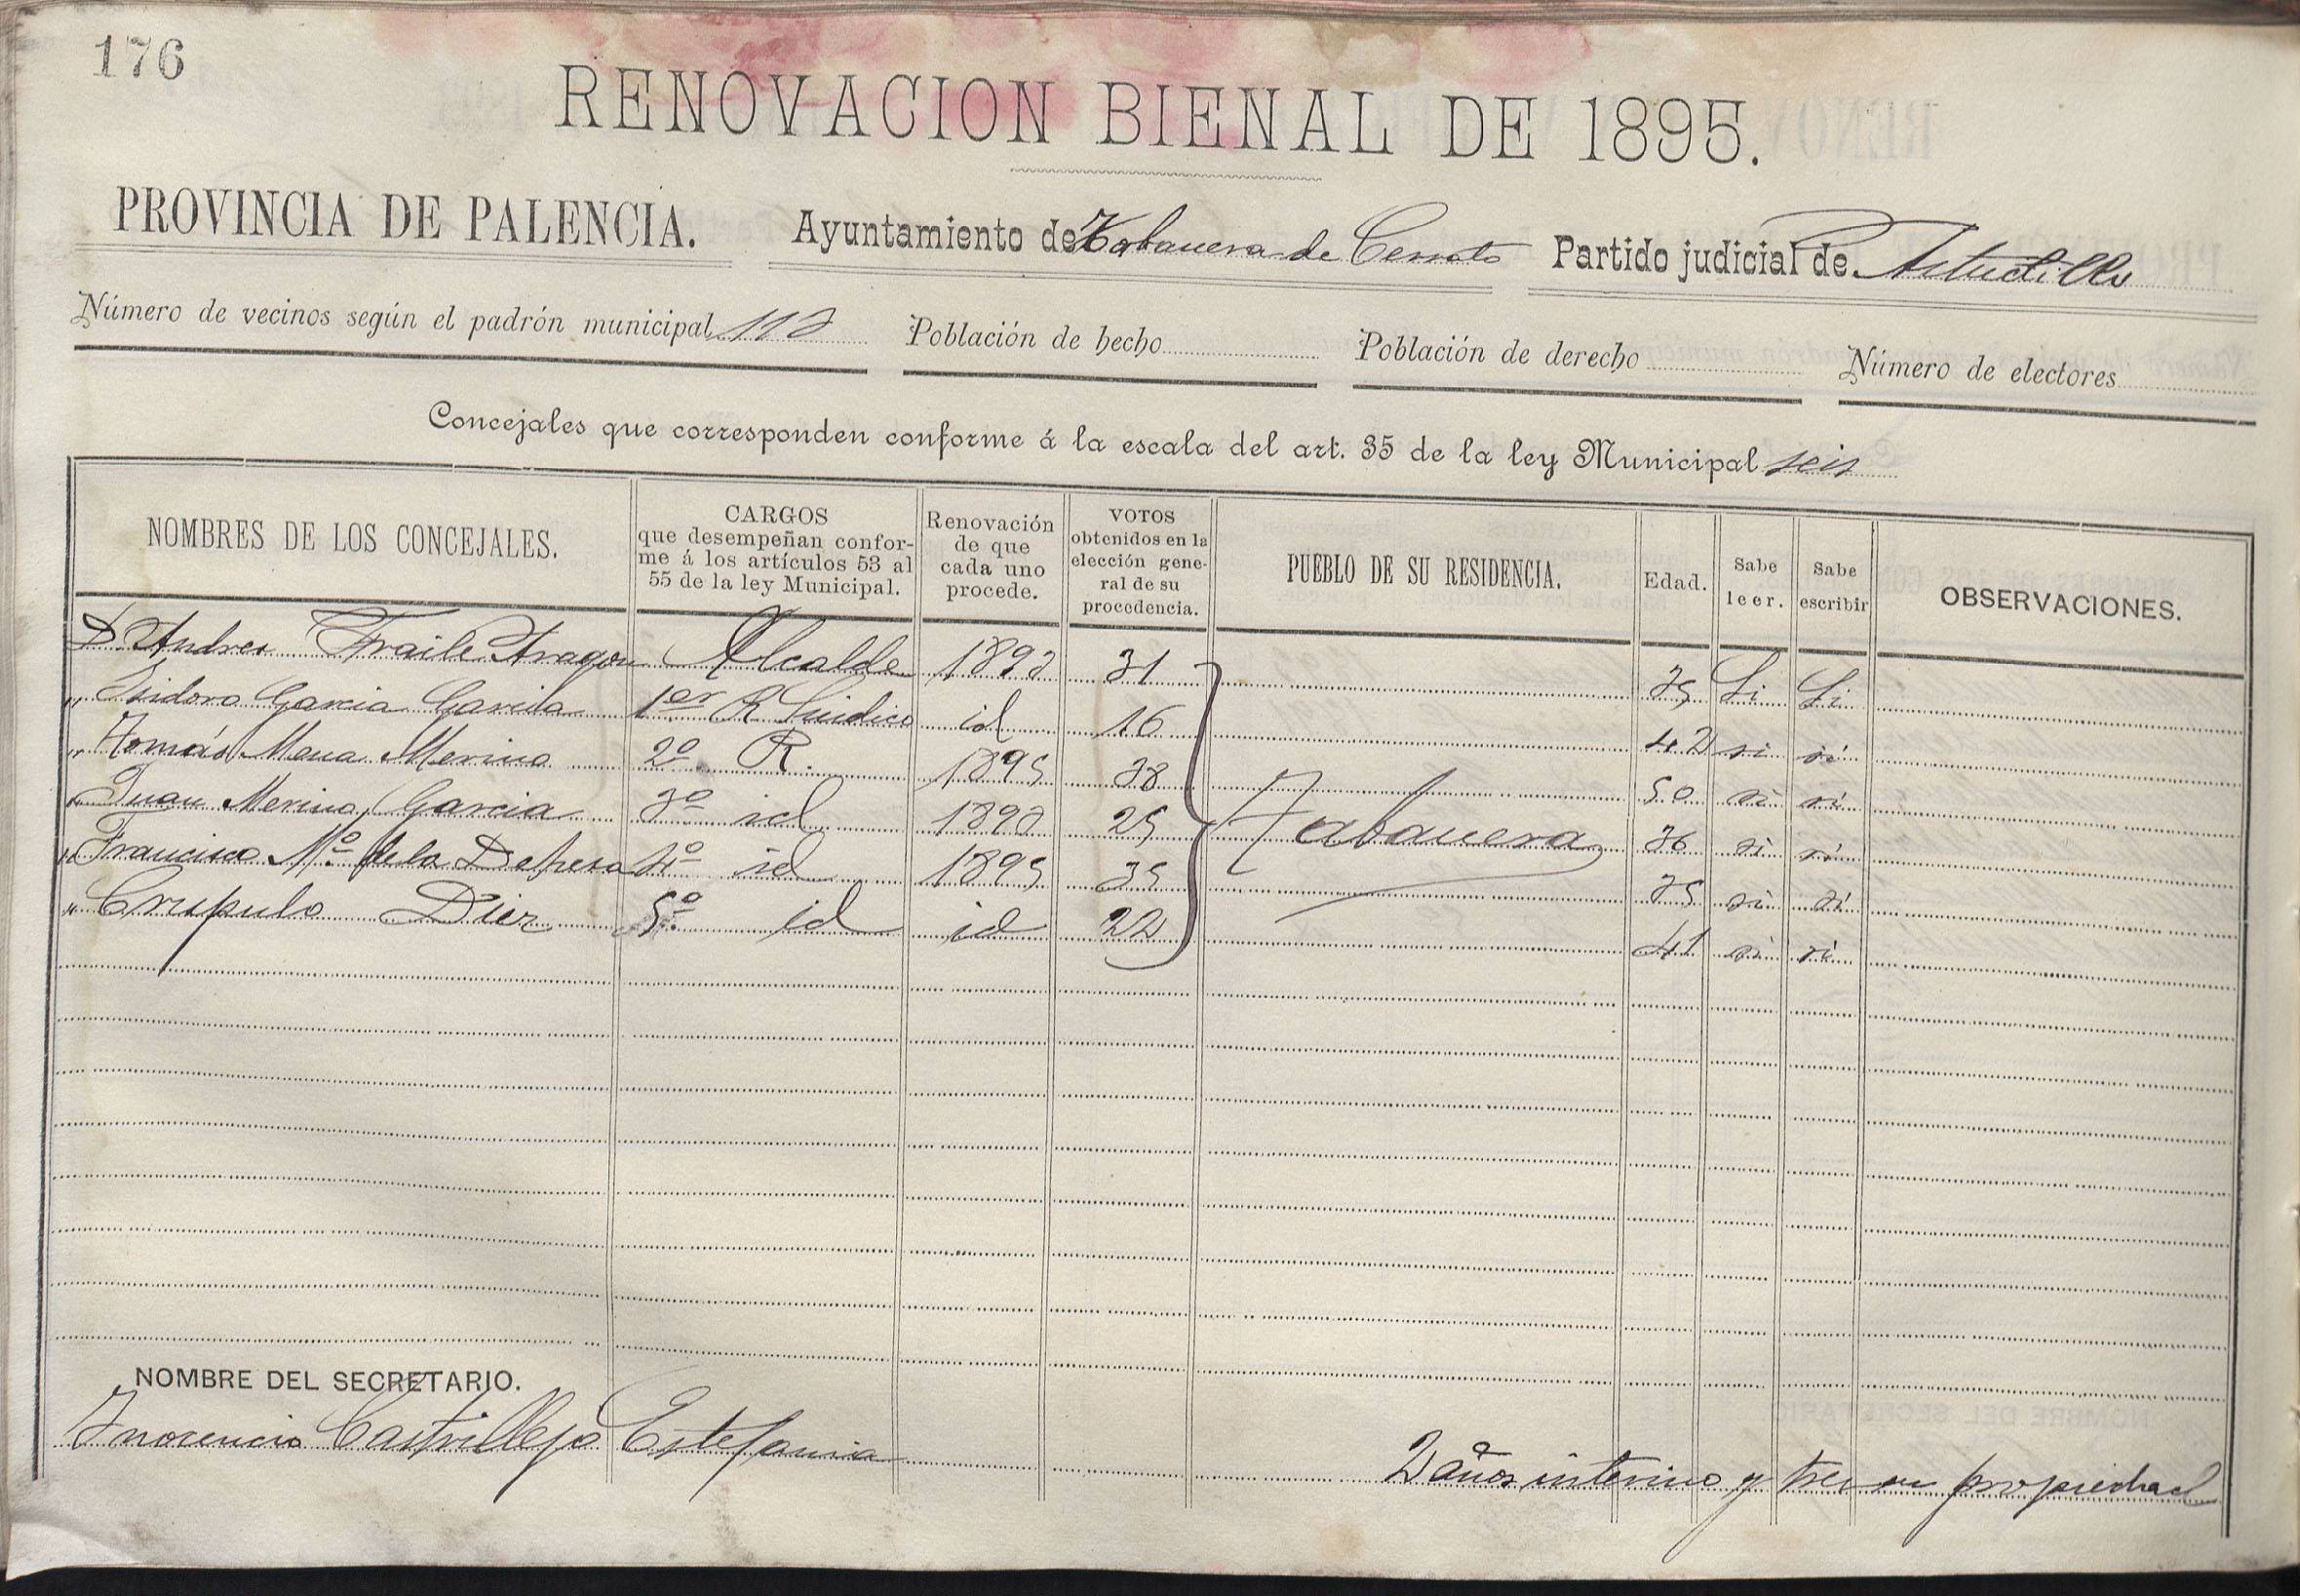 176
RENOVACION BIENAL DE 1895.
PROVINCIA DE PALENCIA. Ayuntamiento de Tabanera de Cerrato Partido judicial de Astudillo
Número de vecinos según el padrón municipal 113 Población de hecho Población de derecho Número de electores
Concejales que corresponden conforme á la escala del art. 35 de la ley Municipal seis
NOMBRES DE LOS CONCEJALES.
CARGOS
que desempeñan confor-
me á los artículos 53 al
55 de la ley Municipal.
Renovación
de que
cada uno
procede.
VOTOS
obtenidos en la
elección gene-
ral de su
procedencia.
PUEBLO DE SU RESIDENCIA.
Edad.
Sabe
leer.
Sabe
escribir
OBSERVACIONES.
D. Andres Fraile Aragon Alcalde 1893 31 35 Si Si
" Isidoro Garcia 1er R Sindico id 16 42 si si
" Tomás Mena Merino 2º R. 1895 38 50 si si
" Juan Merino Garcia 3º id 1893 25 Tabanera 36 si si
" Francisco Mº de la Dehesa 4º id 1895 35 35 si si
" Crupulo Diez 5º id id 22 41 si si
NOMBRE DEL SECRETARIO.
Inocencio Castrillejo Estefania 2 años interino y tres en propiedad